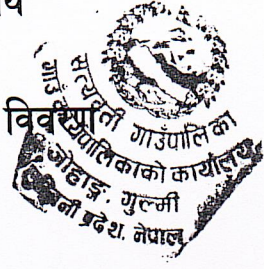 विवरण
सत्यवती गाउँपालिका
गाउँ कार्यपालिकाको कार्यालय
जोहाङ्ग, गुल्मी
नी प्रदेश, नेपाल